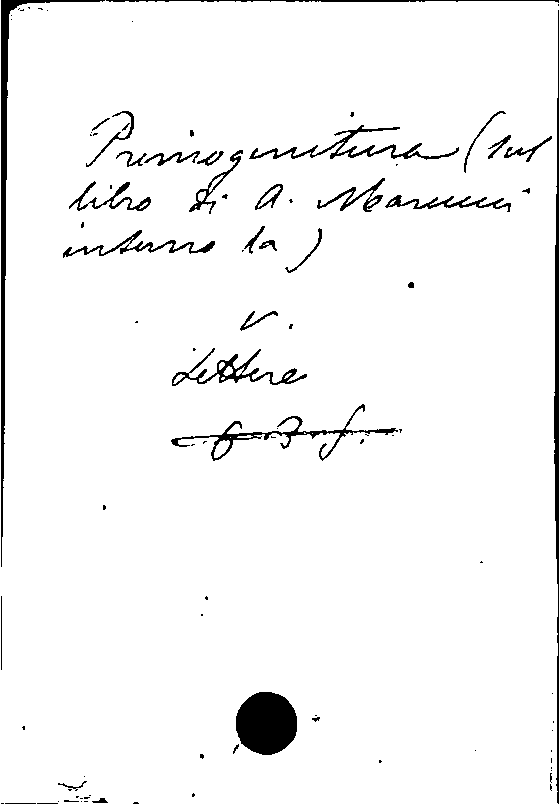 Primogenitura (sul
libro di A. Marucci
intorno la)
v.
Lettere